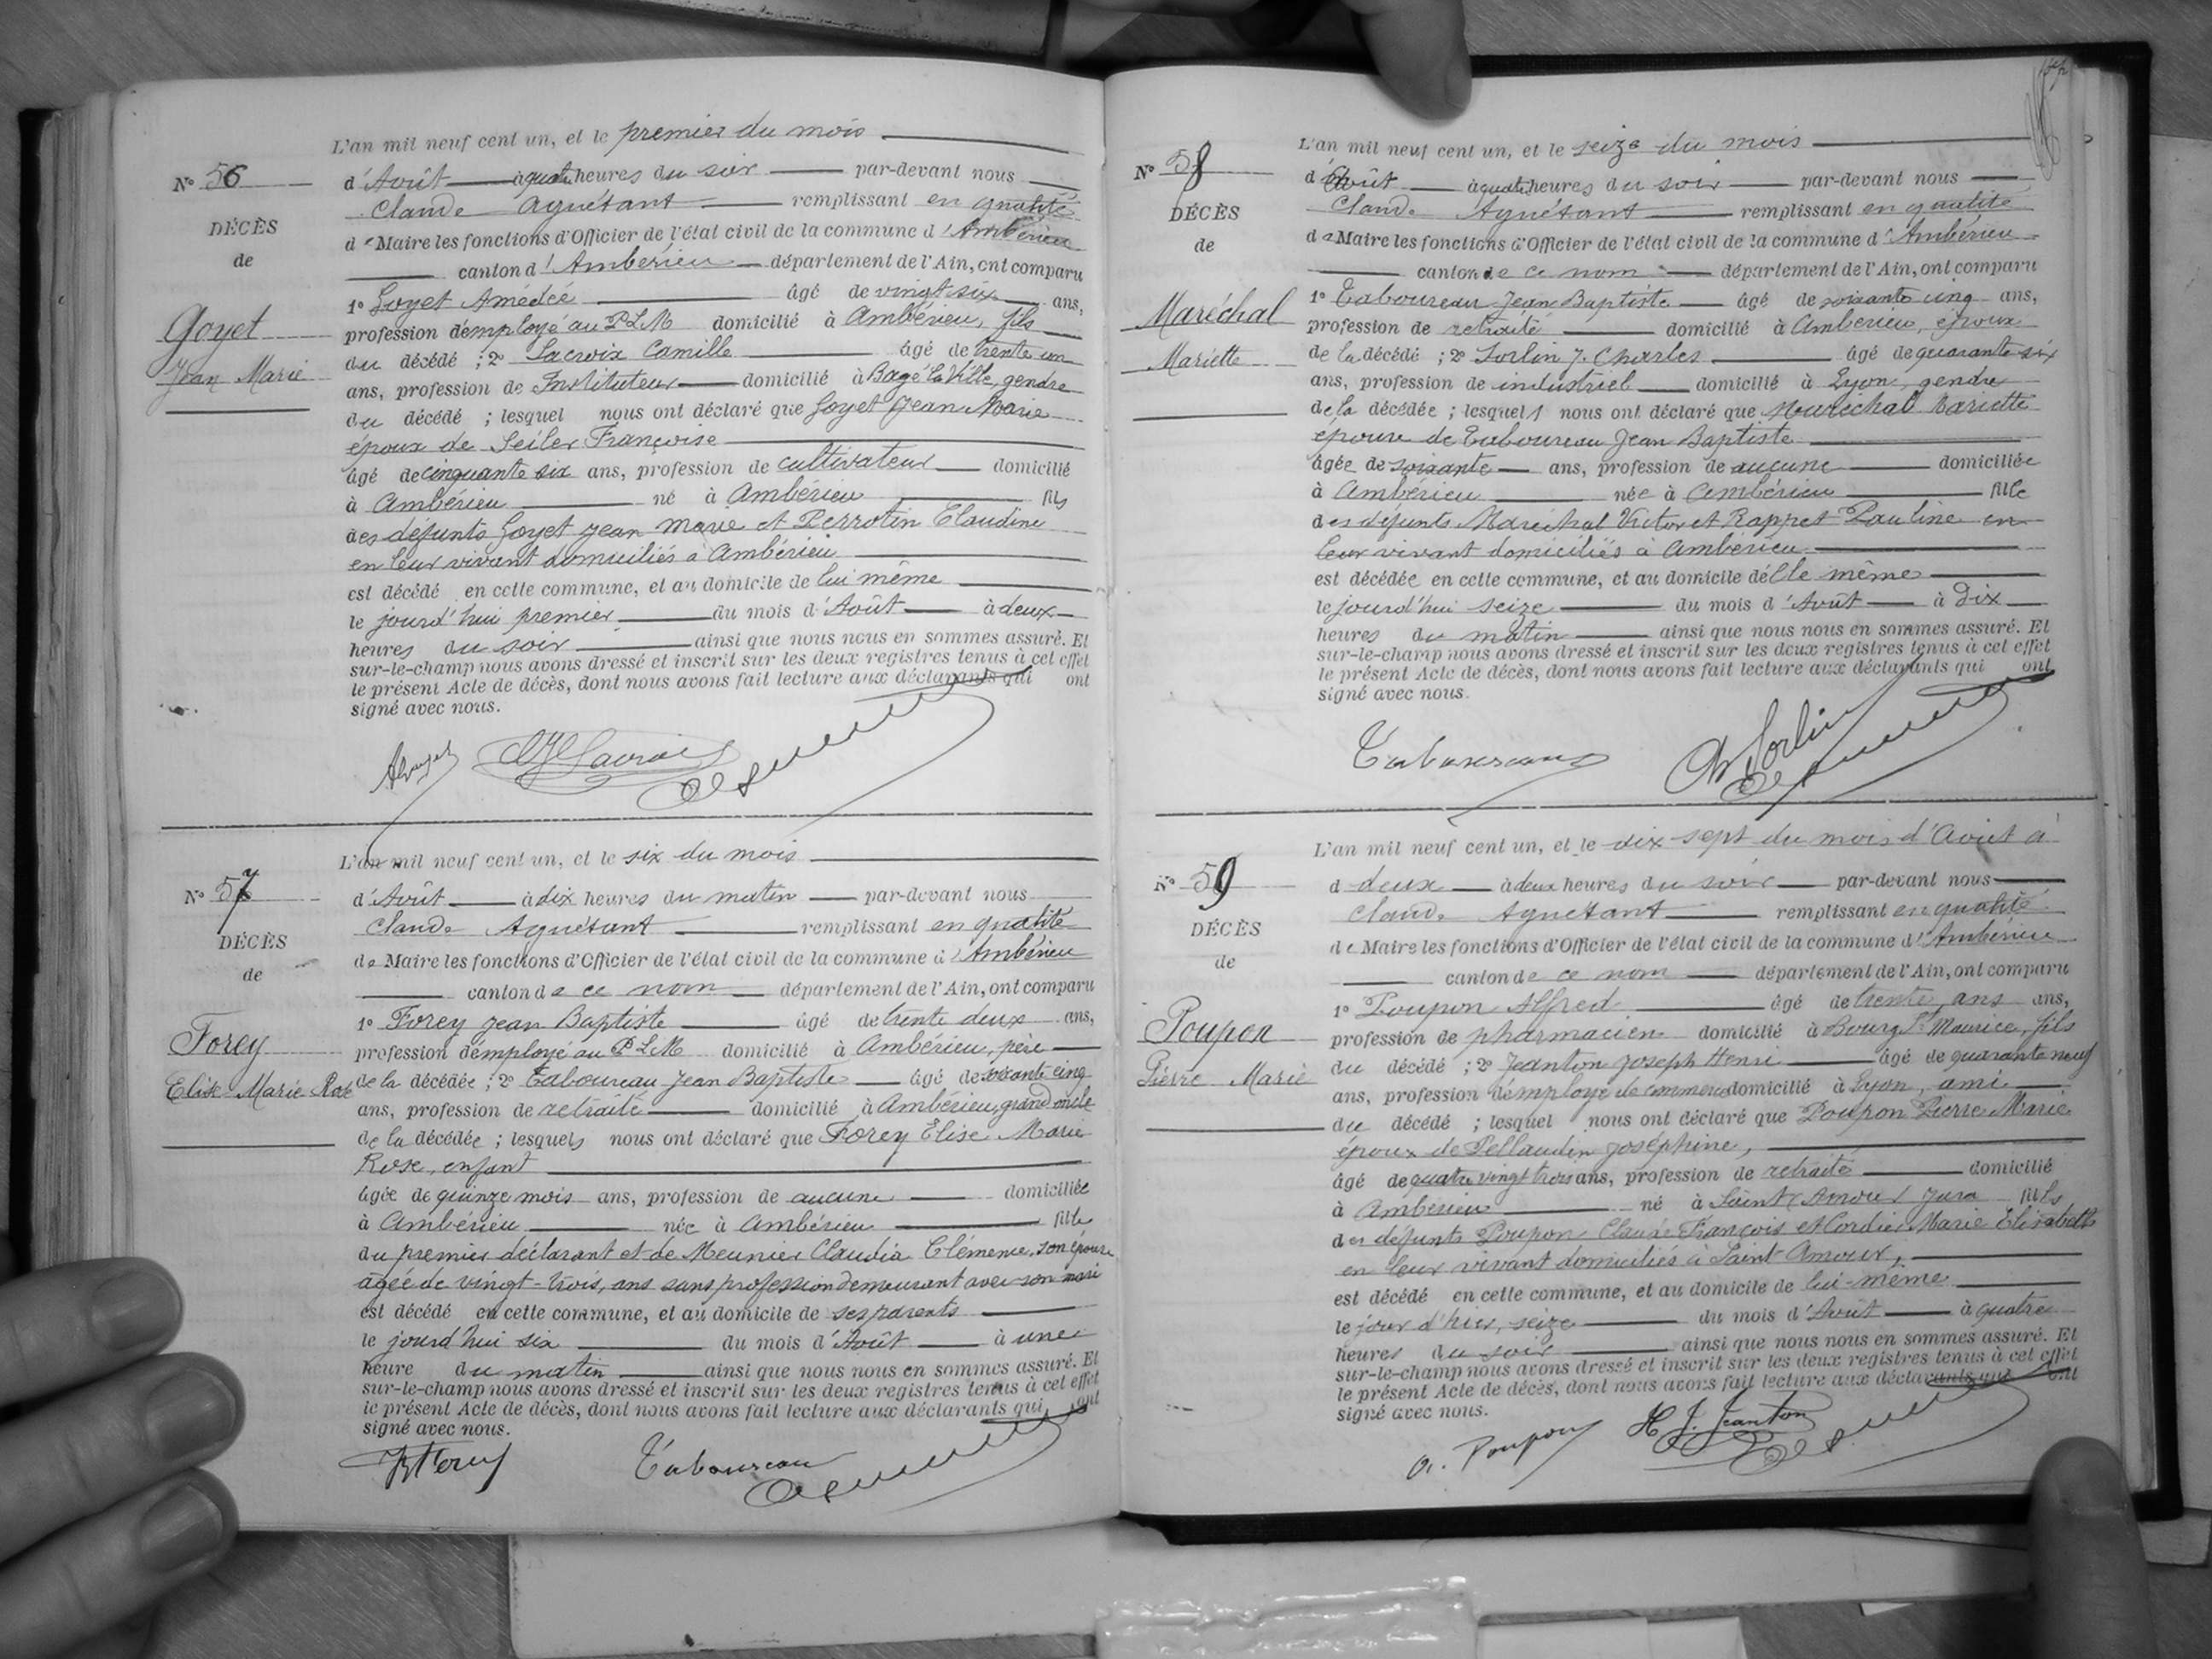 L'an mil neuf cent un, et le premier du mois
N° 56
d'Août à quatre heures du soir par-devant nous
Claude Aguétant remplissant en qualité
DÉCÈS
de Maire les fonctions d'Officier de l'état civil de la commune d'Ambérieu
de
canton d'Ambérieu département de l'Ain, ont comparu
1° Goyet Amédée âgé de vingt six ans,
Goyet
profession d'employé au PLM domicilié à Ambérieu, fils
du décédé ; 2° Lacroix Camille âgé de trente un
Jean Marie
ans, profession de Instituteur domicilié à Bagé la Ville, gendre
du décédé ; lesquel nous ont déclaré que Goyet Jean Marie
époux de Seiler Françoise
âgé de cinquante six ans, profession de cultivateur domicilié
à Ambérieu né à Ambérieu fils
des défunts Goyet Jean Marie et Perrotin Claudine
en leur vivant domiciliés à Ambérieu
est décédé en cette commune, et au domicile de lui même
le jourd'hui premier du mois d'Août à deux
heures du soir ainsi que nous nous en sommes assuré. Et
sur-le-champ nous avons dressé et inscrit sur les deux registres tenus à cet effet
le présent Acte de décès, dont nous avons fait lecture aux déclarants qui ont
signé avec nous.
Lacroix
L'an mil neuf cent un, et le six du mois
N° 57
d'Août à dix heures du matin par-devant nous
Claude Aguétant remplissant en qualité
DÉCÈS
de Maire les fonctions d'Officier de l'état civil de la commune d'Ambérieu
de
canton de ce nom département de l'Ain, ont comparu
1° Forey Jean Baptiste âgé de trente deux ans,
Forey
profession d'employé au PLM domicilié à Ambérieu, père
de la décédée ; 2° Taboureau Jean Baptiste âgé de soixante cinq
Elise Marie Rose
ans, profession de retraité domicilié à Ambérieu, grand oncle
de la décédée ; lesquels nous ont déclaré que Forey Elise Marie
Rose, enfant
âgée de quinze mois ans, profession de aucune domiciliée
à Ambérieu née à Ambérieu fille
du premier déclarant et de Meunier Claudia Clémence, son épouse
âgée de vingt-trois, ans sans profession demeurant avec son mari
est décédé en cette commune, et au domicile de ses parents
le jourd'hui six du mois d'Août à une
heure du matin ainsi que nous nous en sommes assuré. Et
sur-le-champ nous avons dressé et inscrit sur les deux registres tenus à cet effet
le présent Acte de décès, dont nous avons fait lecture aux déclarants qui ont
signé avec nous.
Taboureau
L'an mil neuf cent un, et le seize du mois
N° 58
d'Août à quatre heures du soir par-devant nous
Claude Aguétant remplissant en qualité
DÉCÈS
de Maire les fonctions d'Officier de l'état civil de la commune d'Ambérieu
de
canton de ce nom département de l'Ain, ont comparu
1° Taboureau Jean Baptiste âgé de soixante cinq ans,
Maréchal
profession de retraité domicilié à Ambérieu, époux
de la décédé ; 2° Sorlin J. Charles âgé de quarante six
Mariette
ans, profession de industriel domicilié à Lyon, gendre
de la décédée ; lesquels nous ont déclaré que Maréchal Mariette
épouse de Taboureau Jean Baptiste
âgée de soixante ans, profession de aucune domiciliée
à Ambérieu née à Ambérieu fille
des défunts Maréchal Victor et Rappet Pauline en
leur vivant domiciliés à Ambérieu
est décédée en cette commune, et au domicile d'elle même
le jourd'hui seize du mois d'Août à dix
heures du matin ainsi que nous nous en sommes assuré. Et
sur-le-champ nous avons dressé et inscrit sur les deux registres tenus à cet effet
le présent Acte de décès, dont nous avons fait lecture aux déclarants qui ont
signé avec nous.
Taboureau Ch Sorlin
L'an mil neuf cent un, et le dix-sept du mois d'Août à
N° 59
d deux à deux heures du soir par-devant nous
Claude Aguétant remplissant en qualité
DÉCÈS
de Maire les fonctions d'Officier de l'état civil de la commune d'Ambérieu
de
canton de ce nom département de l'Ain, ont comparu
1° Poupon Alfred âgé de trente ans ans,
Poupon
profession de pharmacien domicilié à Bourg St Maurice, fils
du décédé ; 2° Jeanton Joseph Henri âgé de quarante neuf
Pierre Marie
ans, profession d'employé de commerce domicilié à Lyon, ami
du décédé ; lesquel nous ont déclaré que Poupon Pierre Marie
époux de Pellaudin Joséphine,
âgé de quatre vingt trois ans, profession de retraité domicilié
à Ambérieu né à Saint Amour Jura fils
des défunts Poupon Claude François et Cordier Marie Elisabeth
en leur vivant domiciliés à Saint Amour,
est décédé en cette commune, et au domicile de lui-même
le jour d'hier, seize du mois d'Août à quatre
heures du soir ainsi que nous nous en sommes assuré. Et
sur-le-champ nous avons dressé et inscrit sur les deux registres tenus à cet effet
le présent Acte de décès, dont nous avons fait lecture aux déclarants qui ont
signé avec nous.
A. Poupon H J. Jeanton